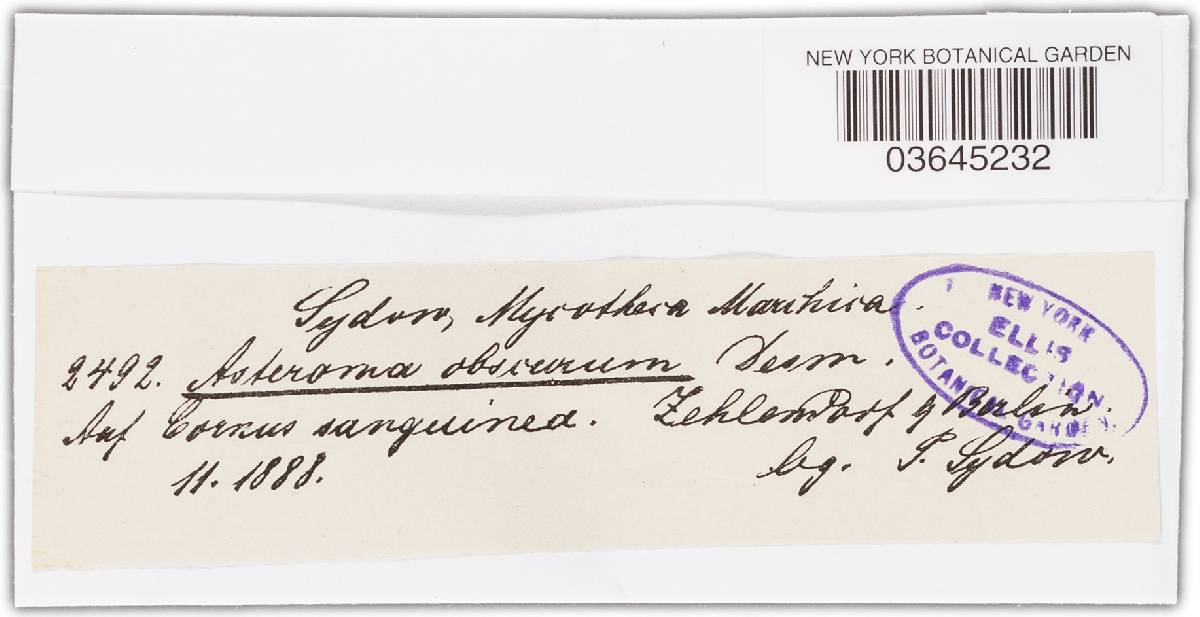 NEW YORK BOTANICAL GARDEN
03645232
Sydow, Mycotheca Marchica.
2492. Asteroma obscurum Desm.
Auf Cornus sanguinea. Zehlendorf b Berlin.
11. 1888. lg. P. Sydow.
NEW YORK
ELLIS
COLLECTION
BOTANICAL
GARDEN